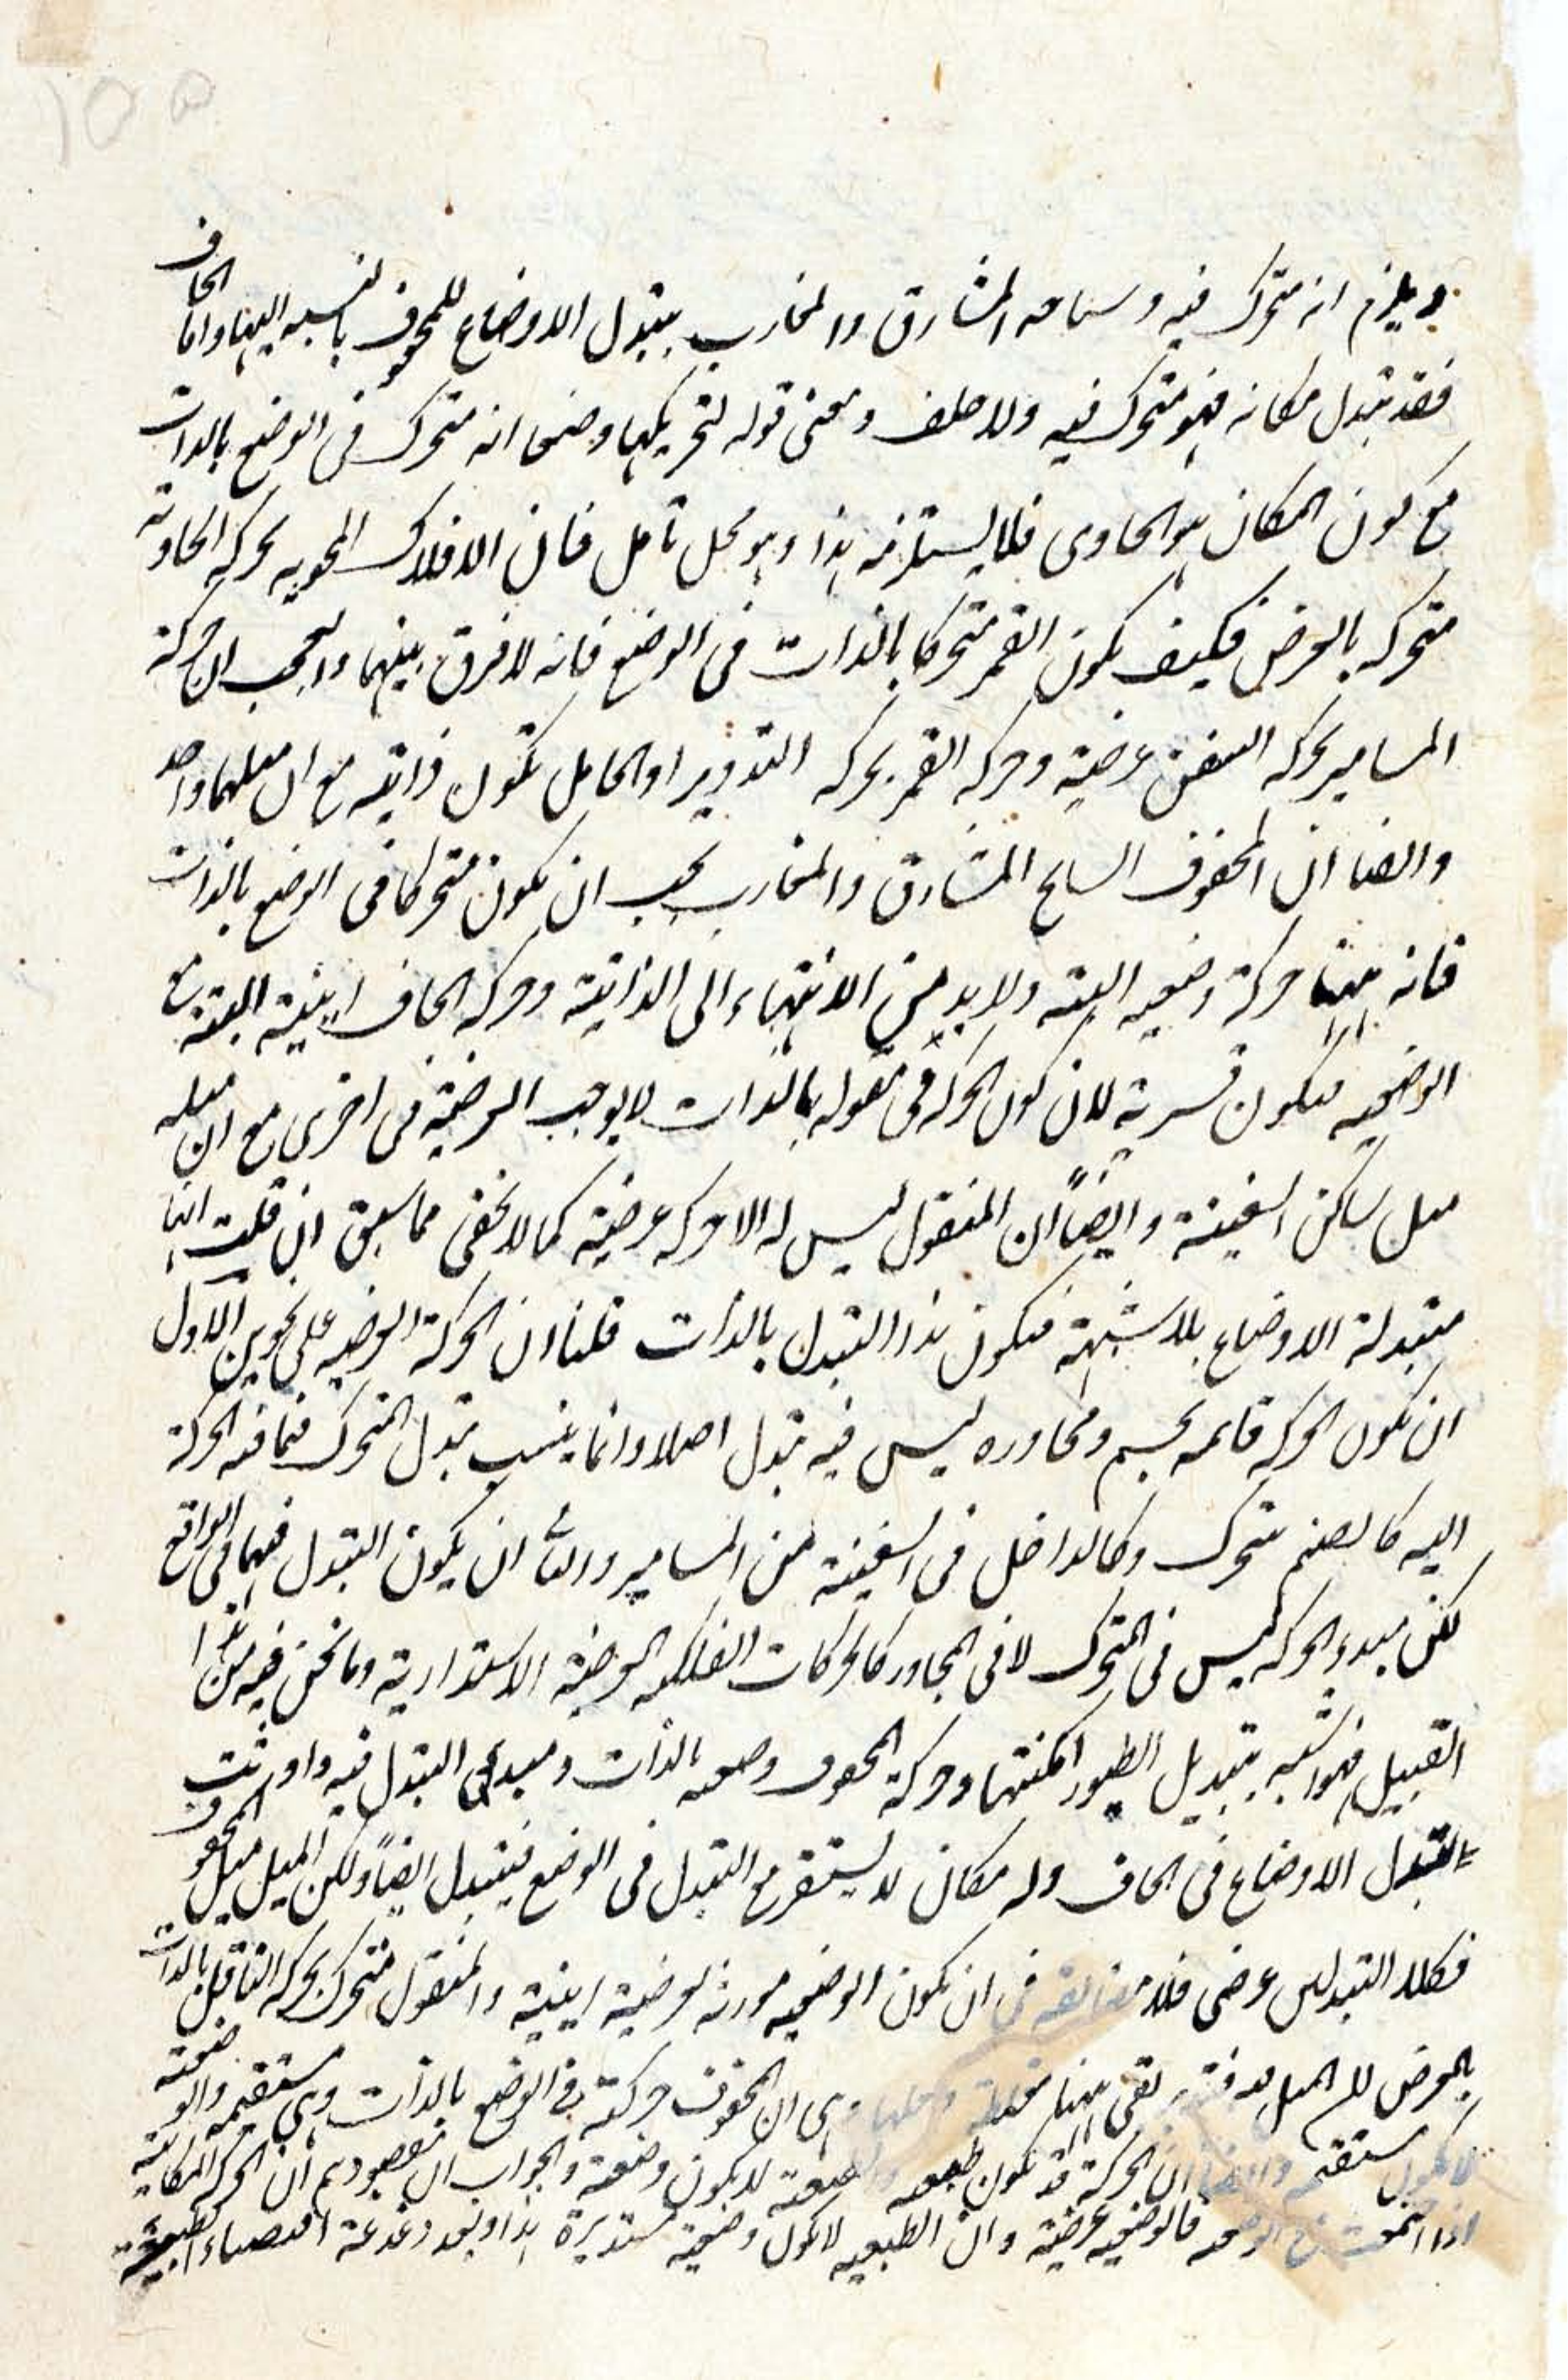 ١٥٥
ويلزم انه متحرك فيه وسامته المشارق والمغارب بتبدل الاوضاع للمحفوف بالنسبه اليها واما الحاف
فقد تبدل مكانه فهو متحرك فيه ولا خلف ومعنى قوله لتحريكها وضعا انه متحرك فى الوضع بالذات
مع كون المكان هو الحاوى فلا يستلزمه هذا وهو محل تامل فان الافلاك المحويه بحركه الحاوية
متحركه بالعرض فكيف يكون القمر متحركا بالذات فى الوضع فانه لا فرق بينهما والعجب ان حركة
المسامير بحركه السفن عرضية وحركه القمر بحركه التدوير او الحامل تكون ذاتيه مع ان ميلهما واحد
وايضا ان المحفوف السامح المشارق والمغارب يجب ان يكون متحركا فى الوضع بالذات
فانه ههنا حركة وضعيه البته ولا بد من الانتهاء الى الذاتية وحركه الحاف اينية البتة مع
الوضعيه فيكون قسرية لان كون الحركه فى مقوله بالذات لا يوجب العرضية فى اخرى مع ان ميله
ميل ساكن السفينة وايضاً ان المنقول ليس له الا حركه عرضية كما لا يخفى مما سبق ان قلت انها
متبدلة الاوضاع بلا شبهة فيكون هذا التبدل بالذات قلنا ان الحركة العرضيه على نحوين الاول
ان تكون الحركه قائمه بجسم ومجاوره ليس فيه تبدل اصلا وانما ينسب تبدل المتحرك فيما فيه الحركة
اليه كالصنم متحرك وكالداخل فى السفينة من المسامير والثانى ان يكون التبدل فيهما فى الواقع
لكن مبدء الحركه ليس فى المتحرك لا فى المجاور كالحركات الفلكيه العرضية الاستدارية وما نحن فيه من هذا
القبيل فهو اشبه بتبديل الطيور امكنتها وحركة المحفوف وضعيه بالذات ومبدء التبدل فيه واورثت
التبدل الاوضاع فى الحاف وله مكان لا يستقر مع التبدل فى الوضع فيتبدل ايضاً ولكن الميل ميل المحفوف
فكلا التبدلين عرضى فلا مضايقه فى ان يكون الوضعيه مورثه لعرضية اينية والمنقول متحرك بحركه الناقل بالذات
بالعرض للميل فيه فتدبر بقى ههنا مغلطه وحلها وهى ان المحفوف حركته فى الوضع بالذات وهى مستقيمه والوضعية
لا تكون مستقيمه وايضا ان الحركة قد تكون طبعيه والطبعية لا يكون وضعية والجواب ان مقصودهم ان الحركه المكانية
اذا اجتمعت مع الوضعيه فالوضعيه عرضية وان الطبعيه لا تكون وضعية مستديرة هذا وبعد دغدغة اقتضاء الطبيعة